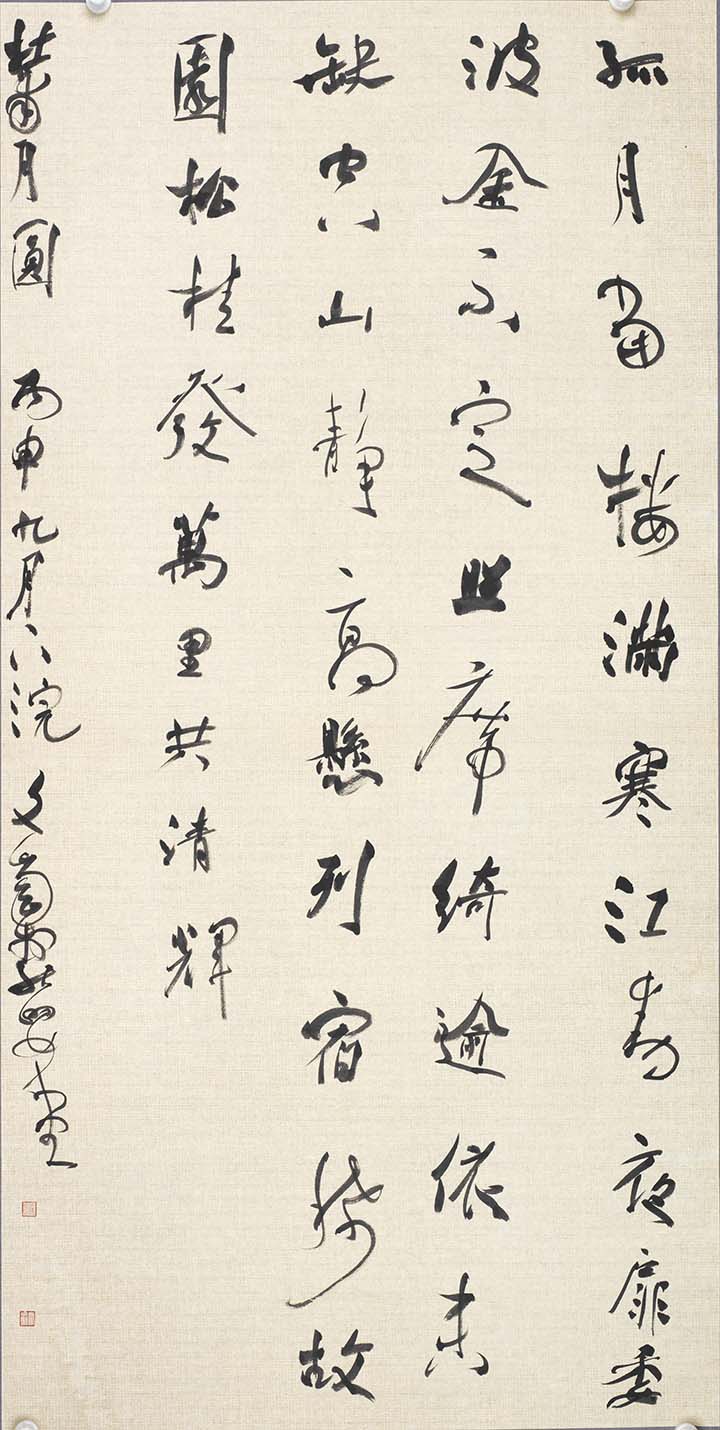 孤月當樓滿寒江動夜扉委
波金不定照席綺逾依未
缺空山靜高懸列宿稀故
園松桂發萬里共清輝
杜甫月圓 丙申九月下浣